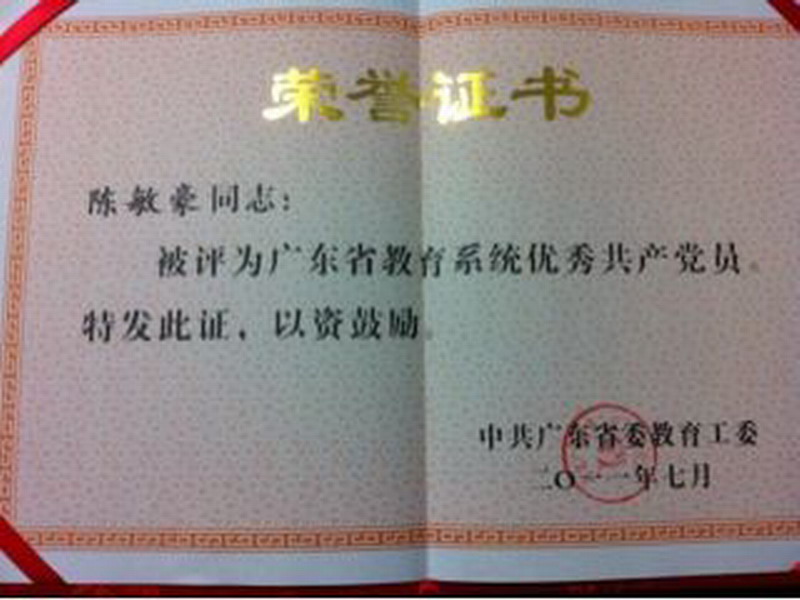 荣誉证书
陈敏豪同志：
被评为广东省教育系统优秀共产党员。
特发此证，以资鼓励。
中共广东省委教育工委
二〇一一年七月